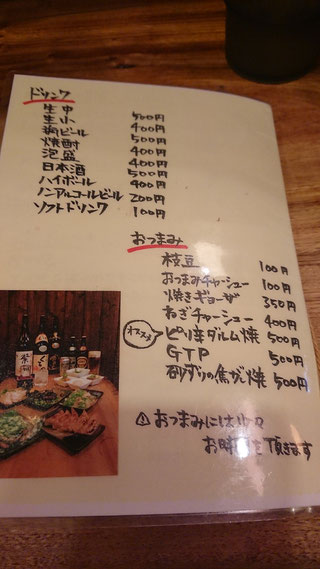 ドリンク
生中 500円
生小 400円
瓶ビール 500円
焼酎 400円
泡盛 400円
日本酒 500円
ハイボール 400円
ノンアルコールビール 200円
ソフトドリンク 100円
おつまみ
枝豆 100円
おつまみチャーシュー 100円
焼きギョーザ 350円
ねぎチャーシュー 400円
オススメ ピリ辛ダルム焼 500円
GTP 500円
砂ずりの焦がし焼 500円
おつまみには少々
お時間を頂きます